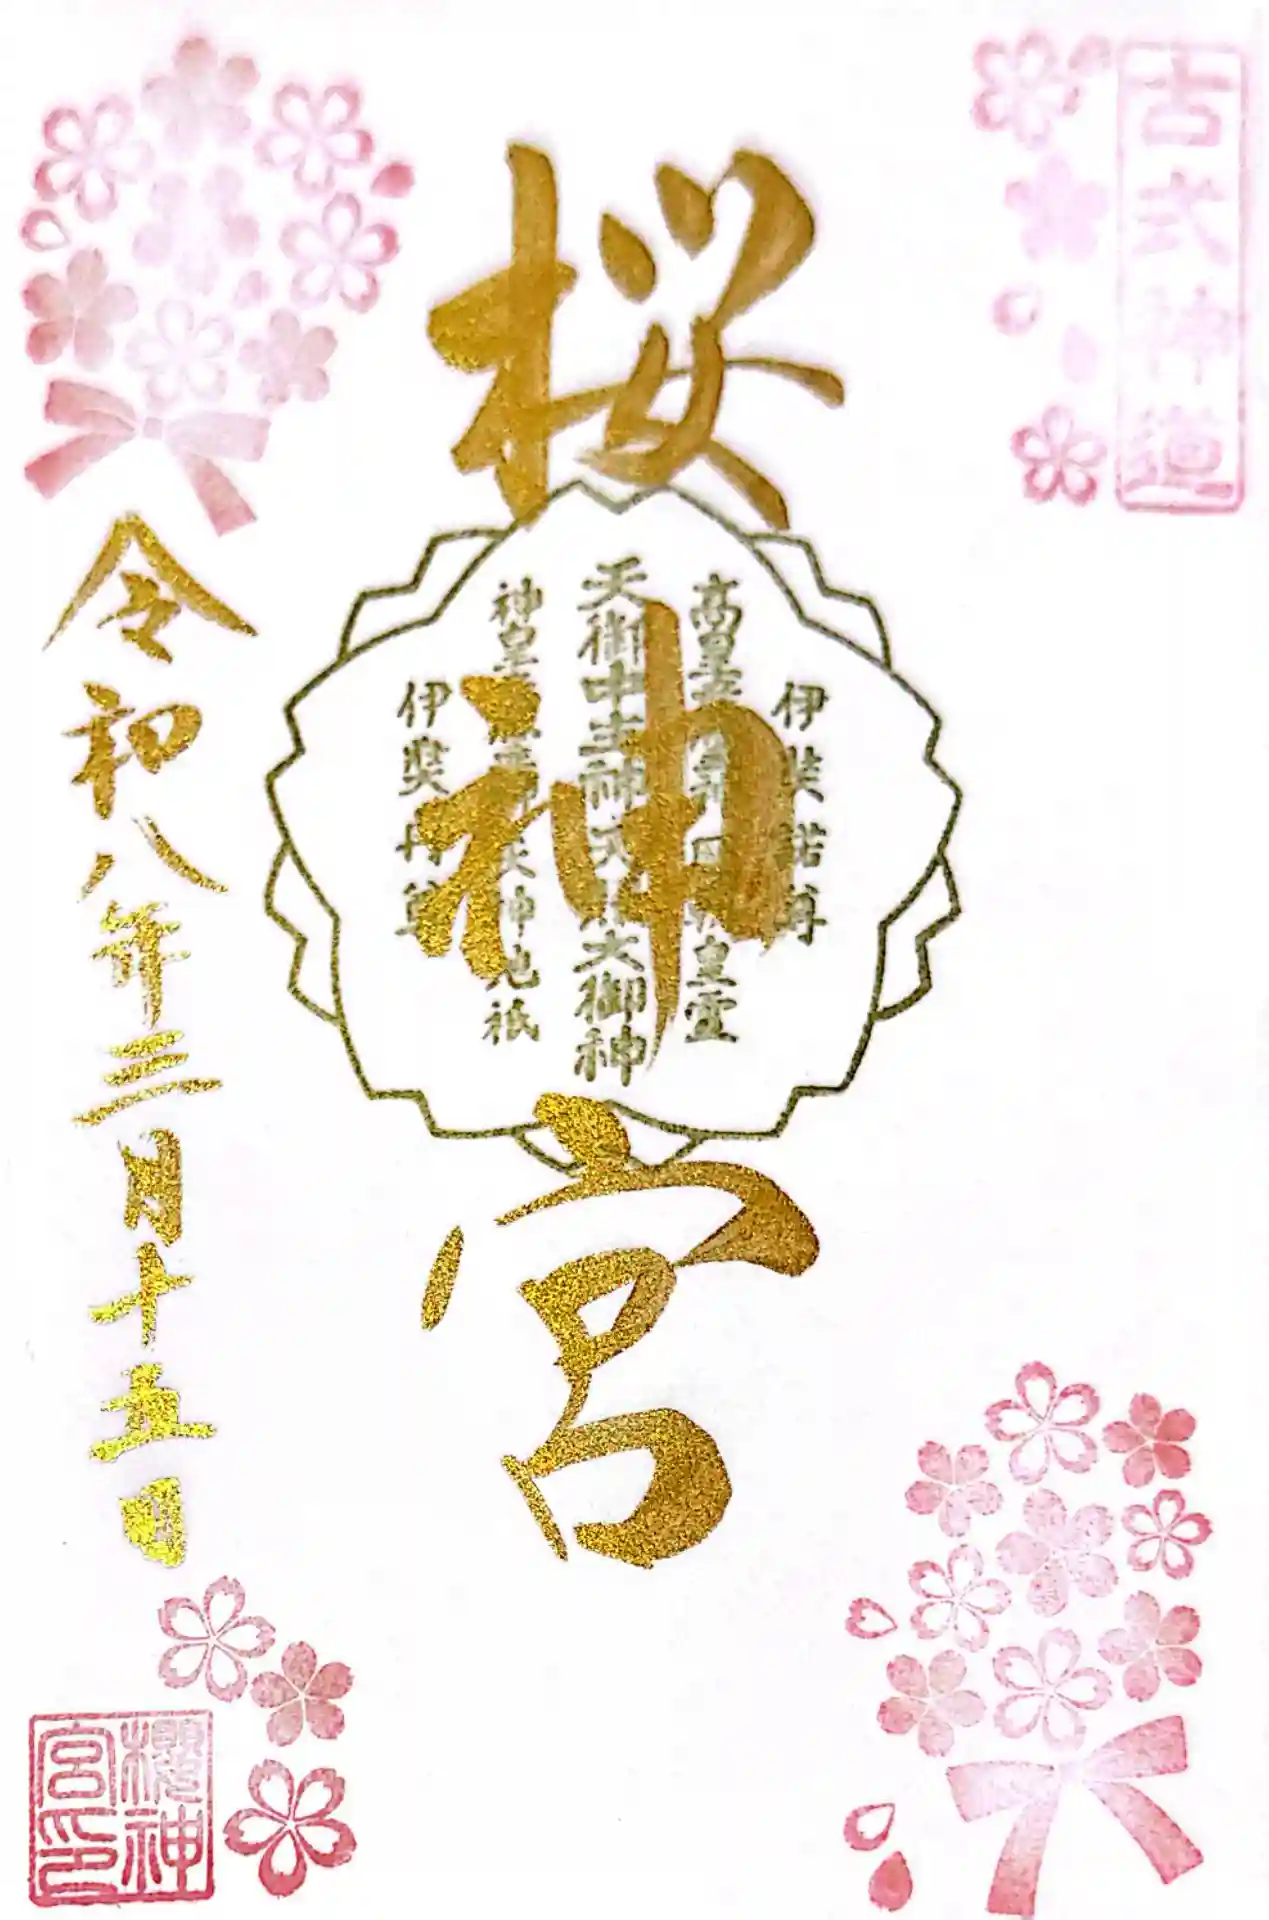 古式神道
桜神宮
伊奘諾尊
高皇
皇霊
天御中主神 天照大御神
神皇
天神地祇
伊奘冉尊
令和八年三月十五日
櫻神
宮印